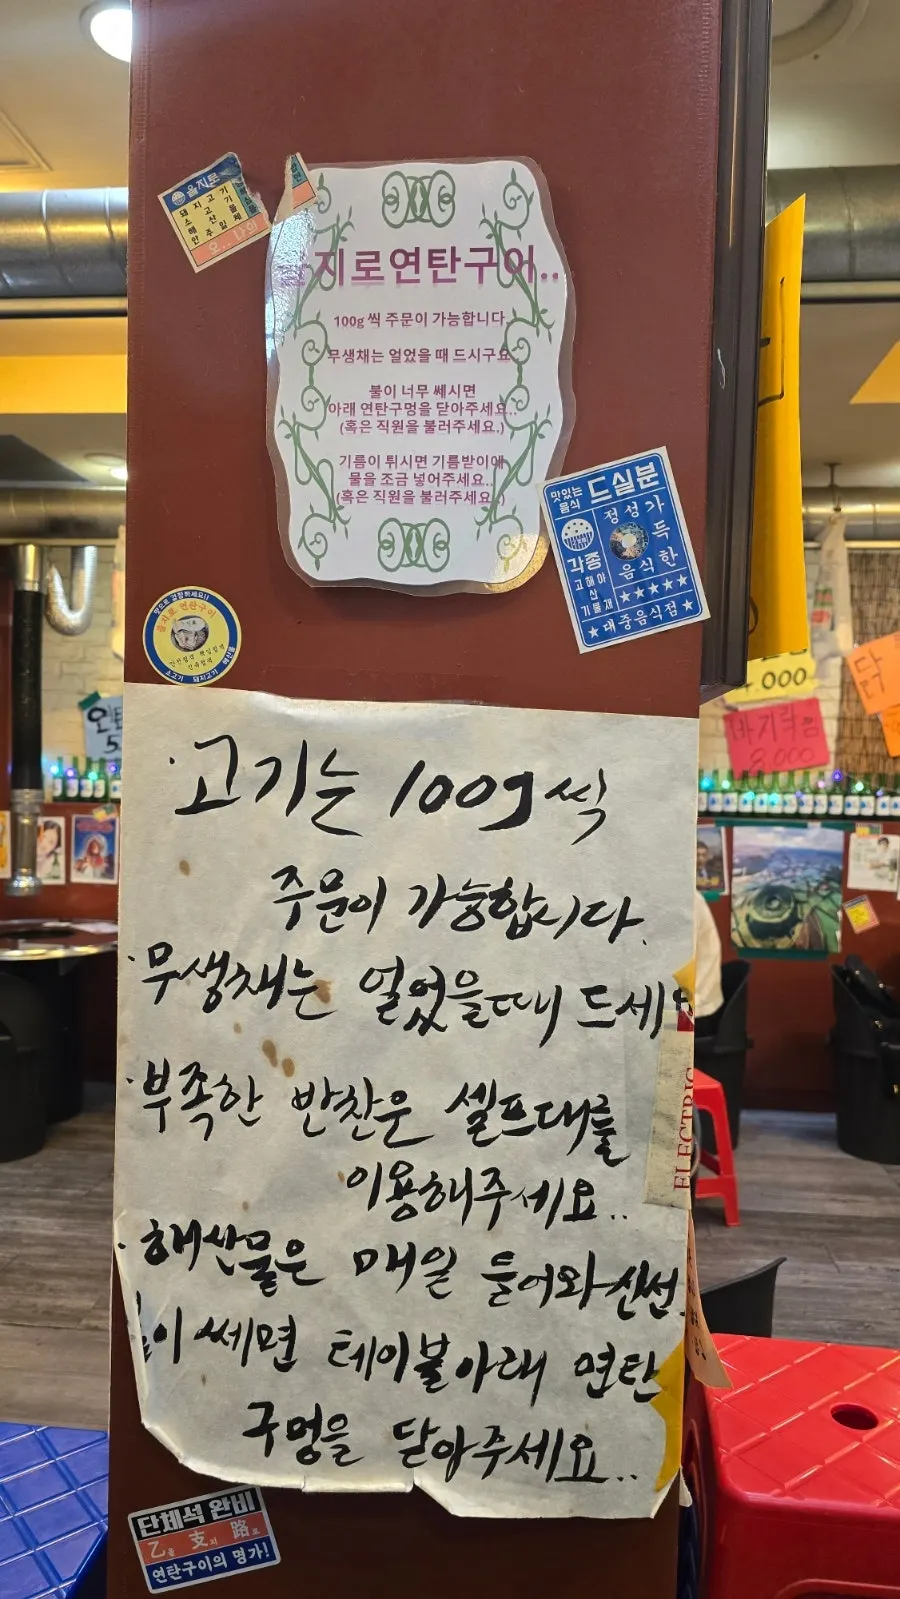 을지로
돼지고기
소고기
해산물
안주일체
을지로연탄구이..
100g 씩 주문이 가능합니다
무생채는 얼었을 때 드시구요
불이 너무 쎄시면
아래 연탄구멍을 닫아주세요..
(혹은 직원을 불러주세요.)
기름이 튀시면 기름받이에
물을 조금 넣어주세요..
(혹은 직원을 불러주세요.)
맛있는 음식 드실분
정성가득
각종 음식한
고해야
산
기물채
★★★★★
★대중음식점★
맛으로 결정하세요!!
을지로 연탄구이
소고기 돼지고기 해산물
·고기는 100g씩
주문이 가능합니다.
·무생채는 얼었을때 드세요
·부족한 반찬은 셀프대를
이용해주세요..
·해산물은 매일 들어와 신선
불이 쎄면 테이블아래 연탄
구멍을 닫아주세요..
ELECTRIC
4.000
바지락
8,000
닭
오
5
단체석 완비
乙을 支지 路로
연탄구이의 명가!